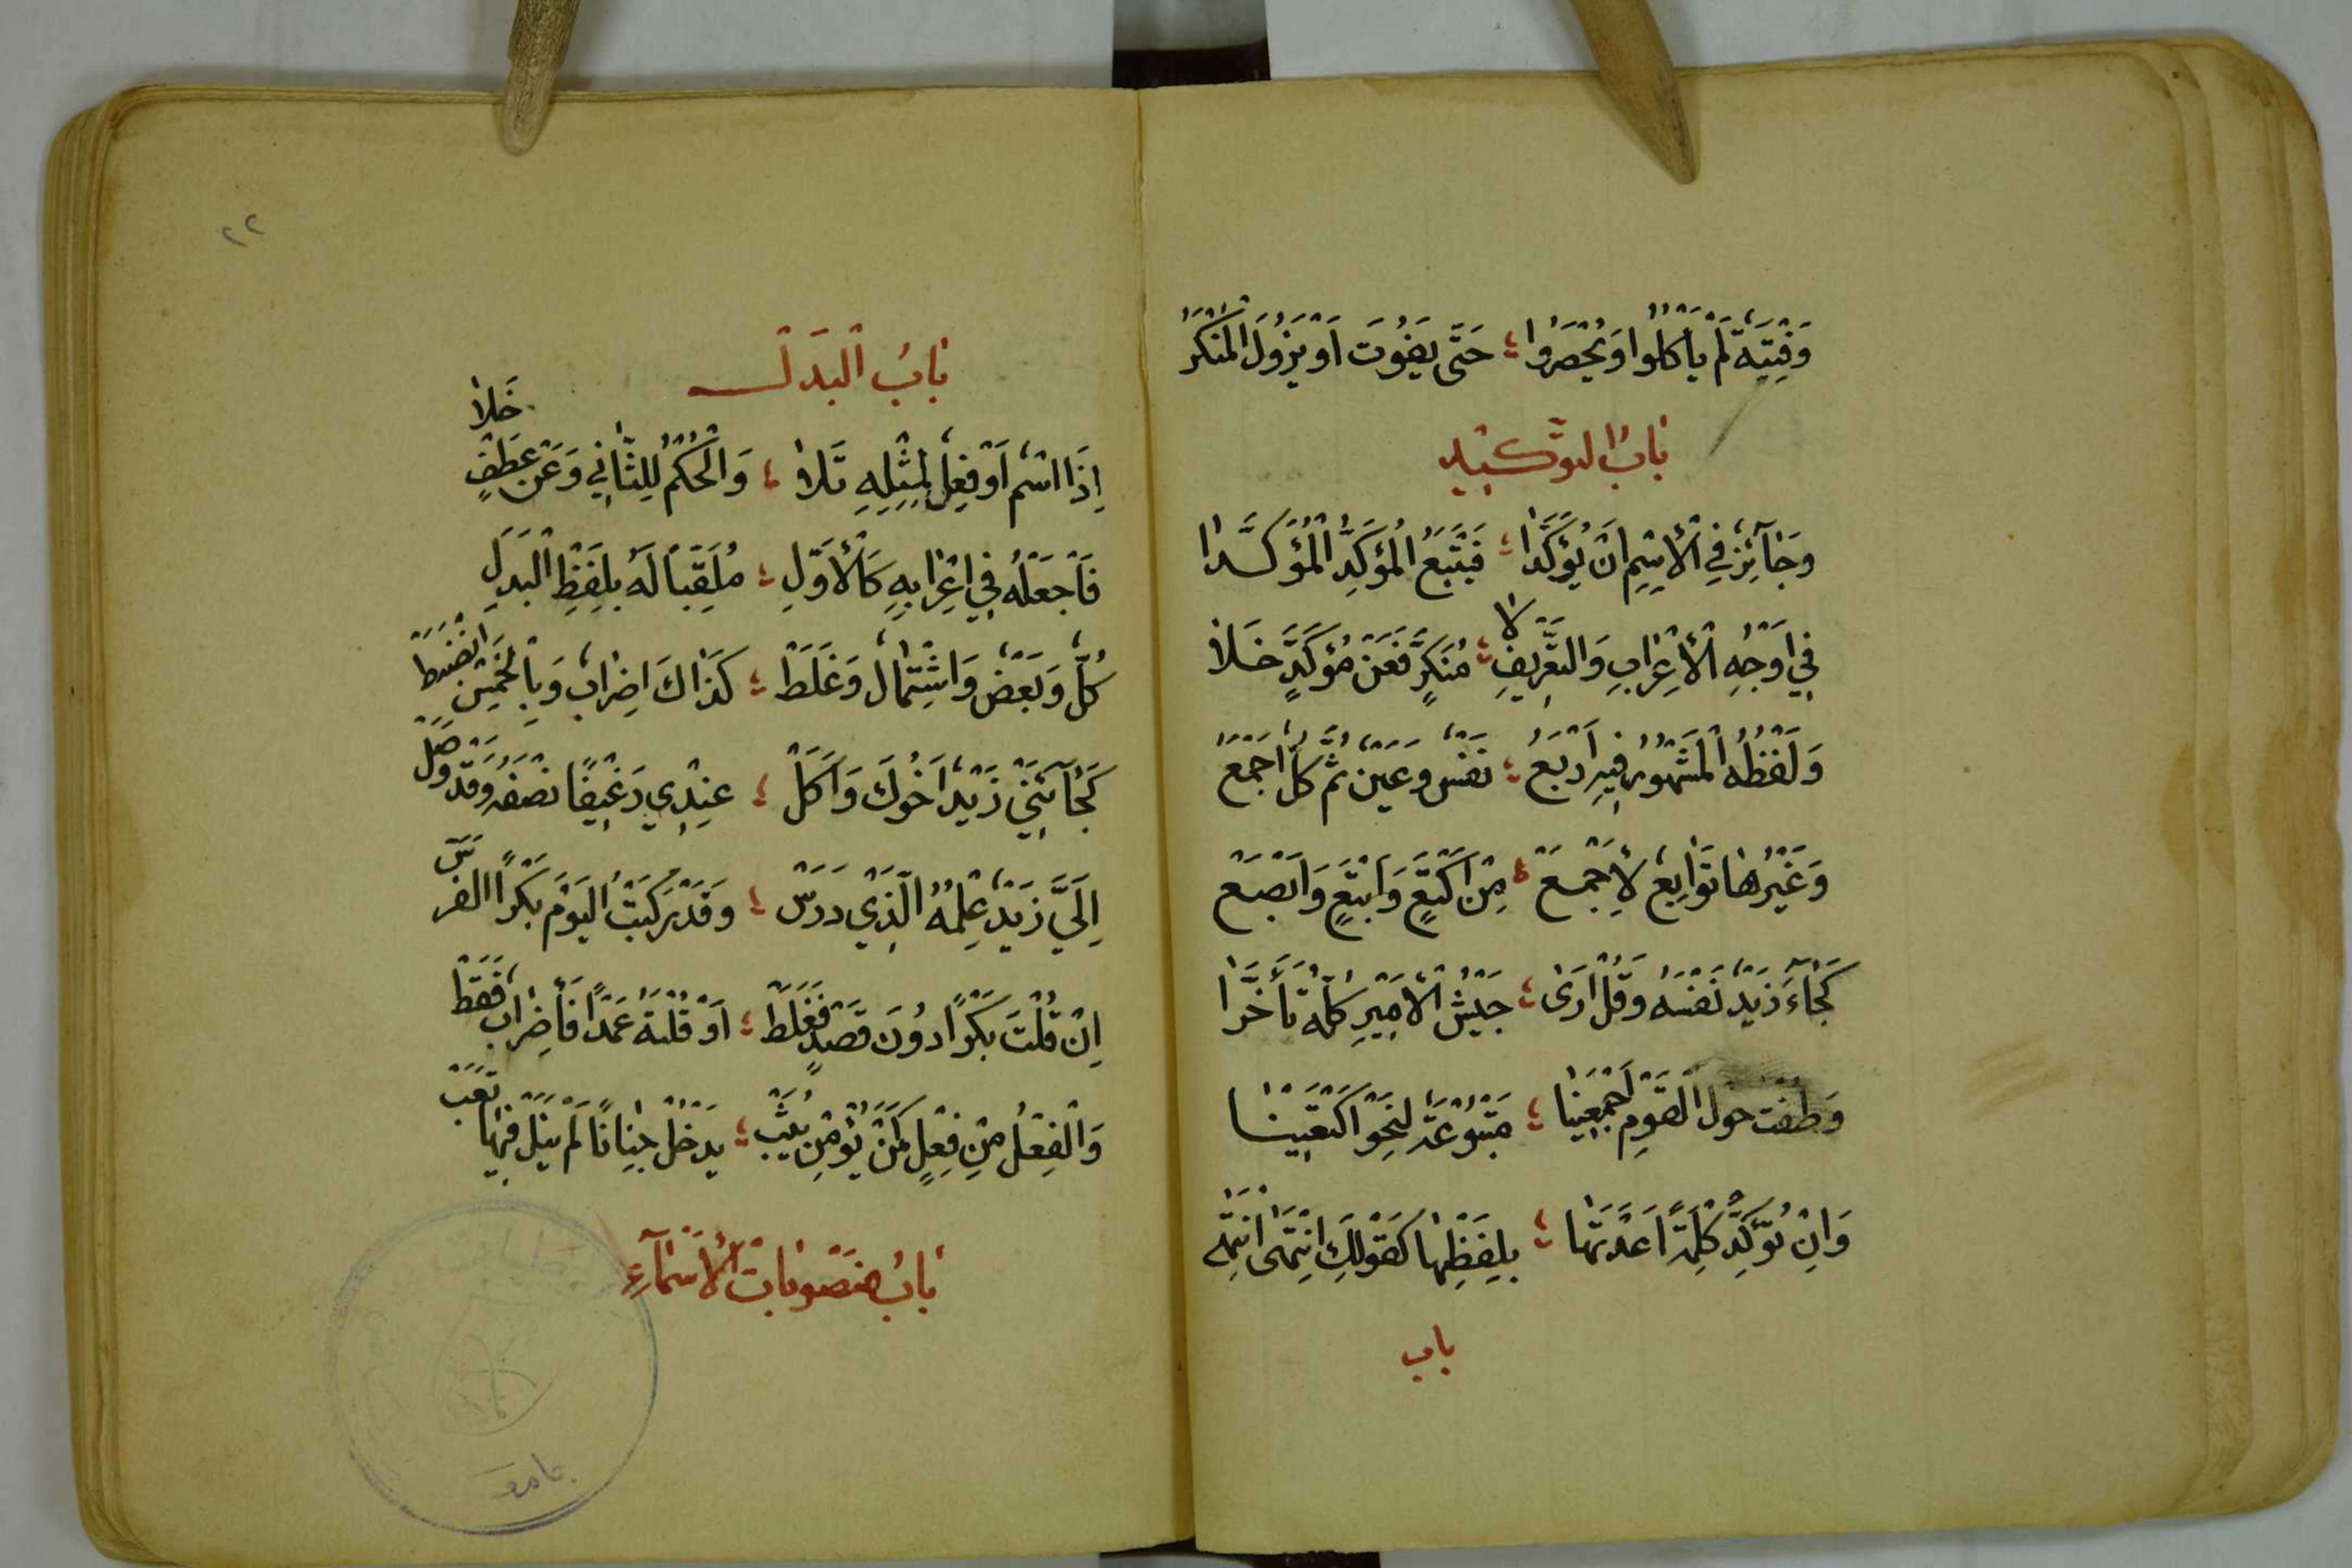 وَفِتْيَةٌ لَمْ يَأْكُلُوا وَيُحْصَرُوا ؛ حَتَّى يَفُوتَ أَوْ يَزُولَ الْمُنْكَرُ
بَابُ التَّوْكِيدِ
وَجَآئِزٌ فِي الْاِسْمِ اَنْ يُؤَكَّدَا ؛ فَيَتْبَعُ الْمُؤَكِّدُ الْمُؤَكَّدَا
فِي اَوْجُهِ الْاِعْرَابِ وَالتَّعْرِيفِ لَا ؛ مُنَكَّرٍ فَعَنْ مُؤَكَّدٍ خَلَا
وَلَفْظُهُ الْمَشْهُورُ فِيهِ اَرْبَعُ ؛ نَفْسٌ وَعَيْنٌ ثُمَّ كُلٌّ اَجْمَعُ
وَغَيْرُهَا تَوَابِعٌ لِاَجْمَعَ ؛ مِنْ اَكْتَعٍ وَابْتَعٍ وَابْصَعِ
كَجَآءَ زَيْدٌ نَفْسُهُ وَقُلْ اَرَى ؛ جَيْشُ الْاَمِيْرِ كُلُّهُ تَأَخَّرَا
وَطُفْتُ حَوْلَ الْقَوْمِ اَجْمَعِيْنَا ؛ مَتْبُوعَةً لِنَحْوِ اَكْتَعِيْنَا
وَاِنْ تُؤَكِّدْ كِلْمَةً اَعَدْتَهَا ؛ بِلَفْظِهَا كَقَوْلِكَ انْتَهَى انْتَهَى
باب
٢٢
بَابُ الْبَدَلْ
اِذَا اسْمٌ اَوْ فِعْلٌ لِمِثْلِهِ تَلَا ؛ وَالْحُكْمُ لِلثَّانِي وَعَنْ عَطْفٍ خَلَا
فَاجْعَلْهُ فِي اِعْرَابِهِ كَالْاَوَّلِ ؛ مُلَقِّبًا لَهُ بِلَفْظِ الْبَدَلِ
كُلٌّ وَبَعْضٌ وَاشْتِمَالٌ وَغَلَطْ ؛ كَذَاكَ اِضْرَابٌ وَبِالْخَمْسِ انْضَبَطْ
كَجَآئَنِيْ زَيْدٌ اَخُوكَ وَاَكَلْ ؛ عِنْدِي رَغِيْفًا نِصْفَهُ وَقَدْ وَصَلْ
اِلَيَّ زَيْدٌ عِلْمُهُ الَّذِي دَرَسْ ؛ وَقَدْ رَكِبْتُ الْيَوْمَ بَكْرًا الْفَرَسْ
اِنْ قُلْتَ بَكْرًا دُونَ قَصْدٍ فَغَلَطْ ؛ اَوْ قُلْتَهُ عَمْدًا فَأِضْرَابٌ فَقَطْ
وَالْفِعْلُ مِنْ فِعْلٍ كَمَنْ يُؤْمِنْ يُثَبْ ؛ يَدْخُلْ جِنَانًا لَمْ يَنَلْ فِيهَا تَعَبْ
بَابُ مَنْصُوبَاتِ الْاَسْمَآءِ
جامعة